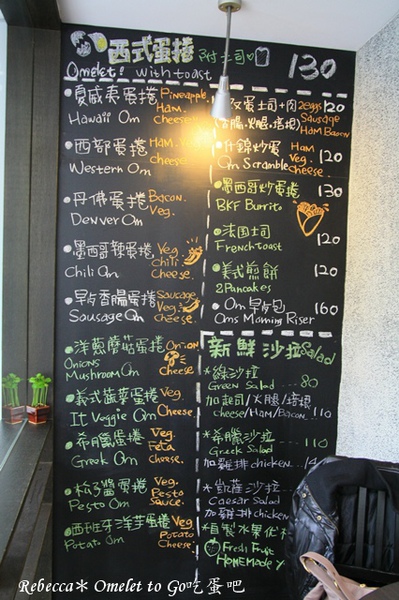 西式蛋捲 附土司
Omelet! with toast 130
夏威夷蛋捲 Pineapple
Ham
Hawaii Om Cheese
西部蛋捲 Ham
Veg.
Western Om Cheese
丹佛蛋捲 Bacon.
Veg.
Denver Om
墨西哥辣蛋捲 Veg
Chili
Chili Om Cheese.
香腸蛋捲 Sausage
Veg.
Sausage Om Cheese
洋蔥蘑菇蛋捲 Onion
Onions
Mushroom Om Cheese
義式蔬菜蛋捲 Veg
It Veggie Om Cheese.
希臘蛋捲 Veg.
Feta
Greek Om Cheese.
松子醬蛋捲 Veg.
Pesto
Pesto Om Sauce.
西班牙洋芋蛋捲 Veg
Potato
Potato Om Cheese.
蛋土司+肉 2eggs 120
Sausage
Ham Bacon
什錦炒蛋 Ham
Veg. 120
Om Scramble Cheese.
墨西哥炒蛋捲 130
BKF Burrito
法国土司
French toast 120
美式煎餅 120
2Pancakes
Om 早安包 160
Oms Morning Riser
新鮮沙拉 Salad
綠沙拉
Green Salad 80
加起司/火腿/培根
Cheese/Ham/Bacon. 110
希臘沙拉 110
Greek Salad
加雞排 chicken
凱薩沙拉
Caesar Salad
加雞排 chicken
自製水果优
Fresh Fruit
Homemade Y
Rebecca＊ Omelet to Go吃蛋吧